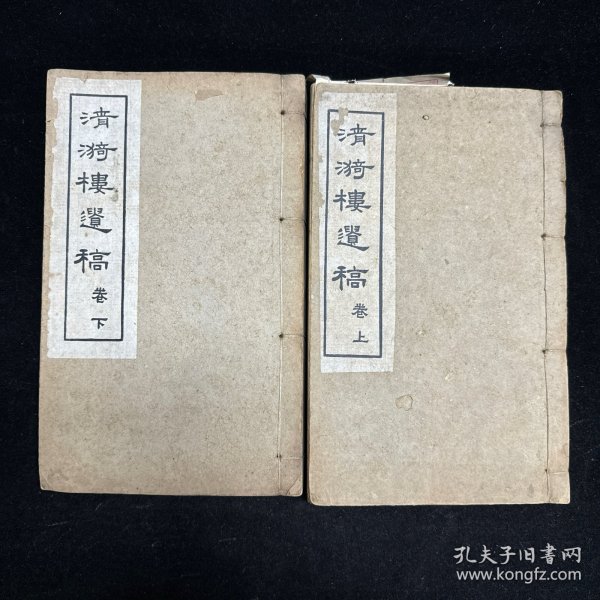 清漪樓遺稿
卷上
清漪樓遺稿
卷下
孔夫子旧书网
www.kongfz.com